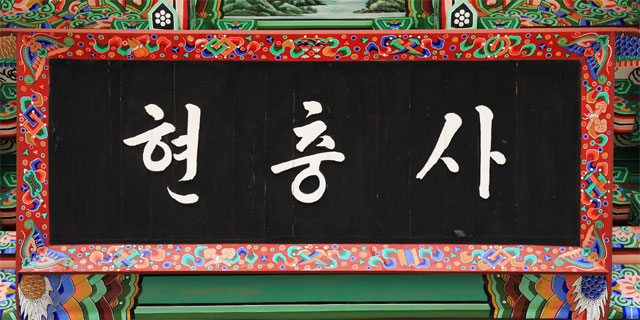 현충사